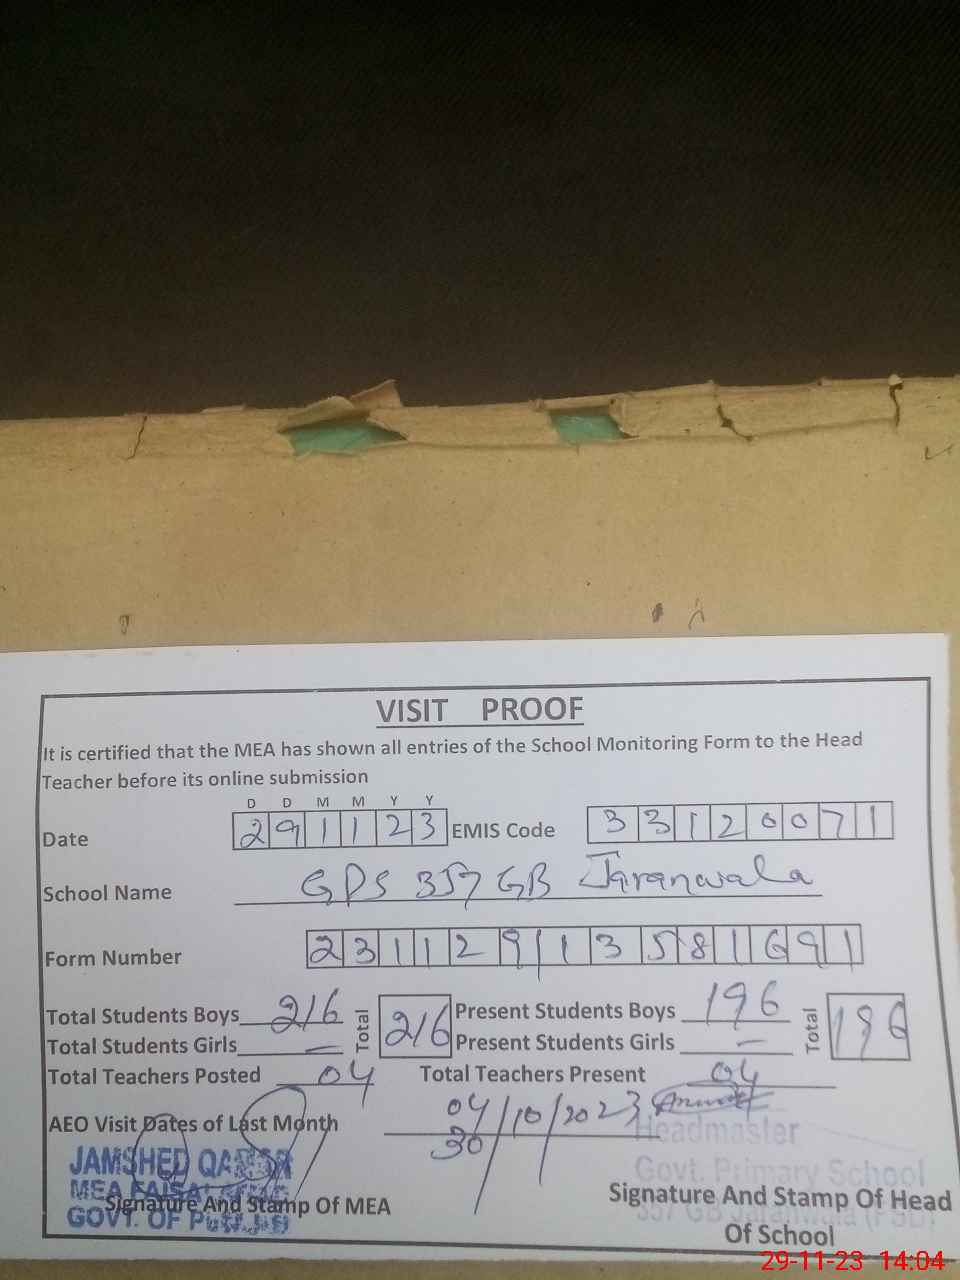 VISIT PROOF
It is certified that the MEA has shown all entries of the School Monitoring Form to the Head
Teacher before its online submission
D D M M Y Y
Date 2 9 1 1 2 3 EMIS Code 3 3 1 2 0 0 7 1
School Name GPS 357 GB Jaranwala
Form Number 2 3 1 1 2 9 1 3 5 8 1 6 9 1
Total Students Boys 216 Total 216 Present Students Boys 196 Total 196
Total Students Girls — Present Students Girls —
Total Teachers Posted 04 Total Teachers Present 04
AEO Visit Dates of Last Month 04/10/2023
30
Headmaster
JAMSHED
Govt. Primary School
MEA FAISAL
Signature And Stamp Of MEA
Signature And Stamp Of Head
GOVT. OF PUNJAB
357 GB Jaranwala (FSD)
Of School
29-11-23 14:04